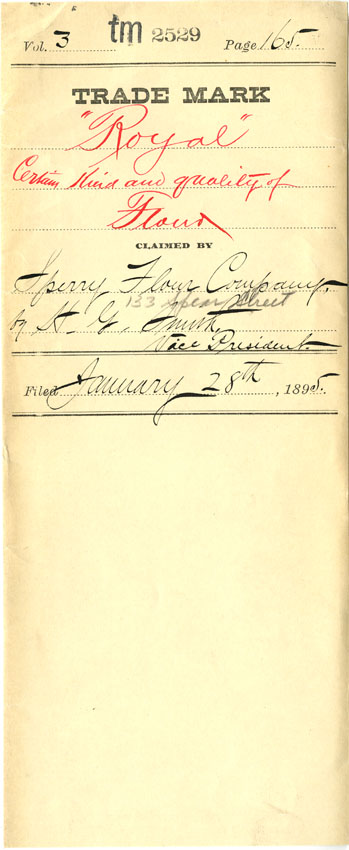 Vol. 3 tm 2529 Page 165.
TRADE MARK
"Royal"
Certain kind and quality of
Flour
CLAIMED BY
Sperry Flour Company.
133 Spear Street
by H. G. Smith,
Vice President.
Filed January 28th, 1895.